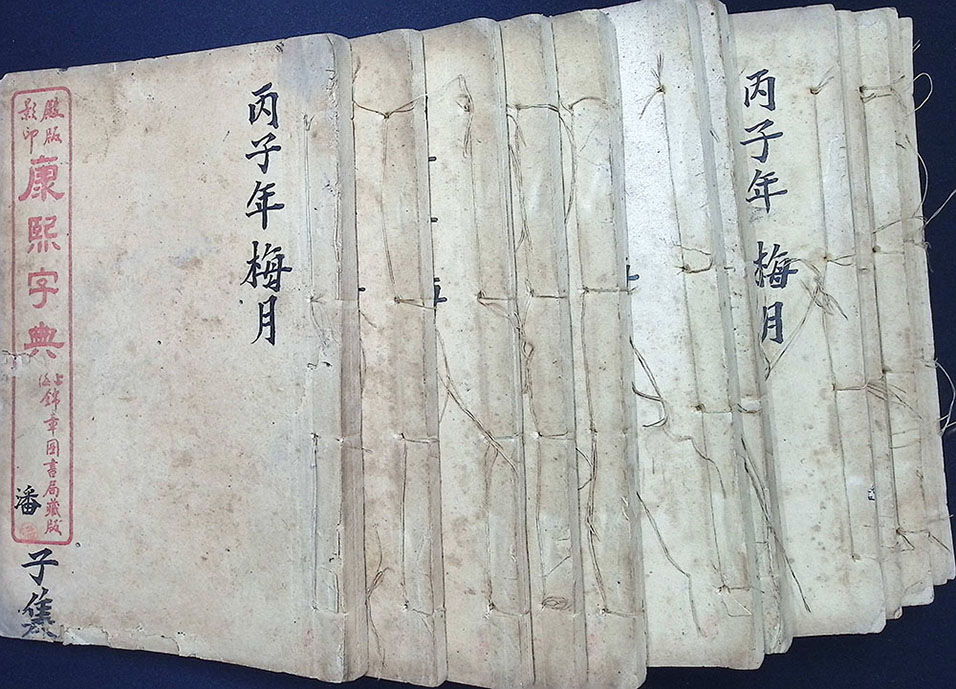 丙子年梅月
殿版
影印
康熙字典
上海
錦章圖書局藏版
潘
子集
丙子年梅月